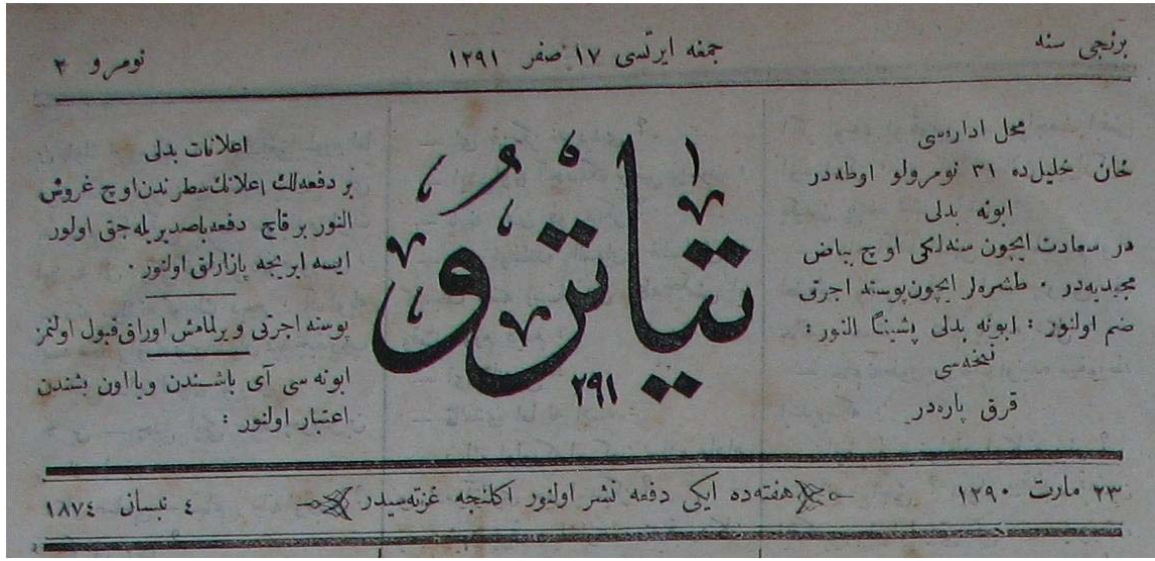 برنجی سنه
جمعه ایرتسی ١٧ صفر ١٢٩١
نومرو ٢
محل اداره‌سی
خان خلیل‌ده ٣١ نومرولو اوطه‌در
ابونه بدلی
در سعادت ایچون سنه‌لکی اوچ بیاض
مجیدیه‌در ٠ طشره‌لر ایچون پوسته اجرتی
ضم اولنور : ابونه بدلی پشیناً النور :
نسخه‌سی
قرق پاره‌در
تیاترو
٢٩١
اعلانات بدلی
بر دفعه‌لك اعلانك سطرندن اوچ غروش
النور بر قاچ دفعه باصدیریله‌جق اولور
ایسه ایریجه پازارلق اولنور ٠
پوسته اجرتی ویرلمامش اوراق قبول اولنمز
ابونه سی آی باشندن ویا اون بشندن
اعتبار اولنور :
٢٣ مارت ١٢٩٠
هفته‌ده ایکی دفعه نشر اولنور اکلنجه غزته‌سیدر
٤ نیسان ١٨٧٤